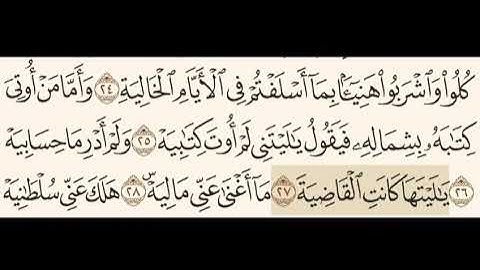 كُلُوا۟ وَٱشْرَبُوا۟ هَنِيٓـًٔۢا بِمَآ أَسْلَفْتُمْ فِى ٱلْأَيَّامِ ٱلْخَالِيَةِ ٢٤ وَأَمَّا مَنْ أُوتِىَ
كِتَٰبَهُۥ بِشِمَالِهِۦ فَيَقُولُ يَٰلَيْتَنِى لَمْ أُوتَ كِتَٰبِيَهْ ٢٥ وَلَمْ أَدْرِ مَا حِسَابِيَهْ
٢٦ يَٰلَيْتَهَا كَانَتِ ٱلْقَاضِيَةَ ٢٧ مَآ أَغْنَىٰ عَنِّى مَالِيَهْ ۜ ٢٨ هَلَكَ عَنِّى سُلْطَٰنِيَهْ